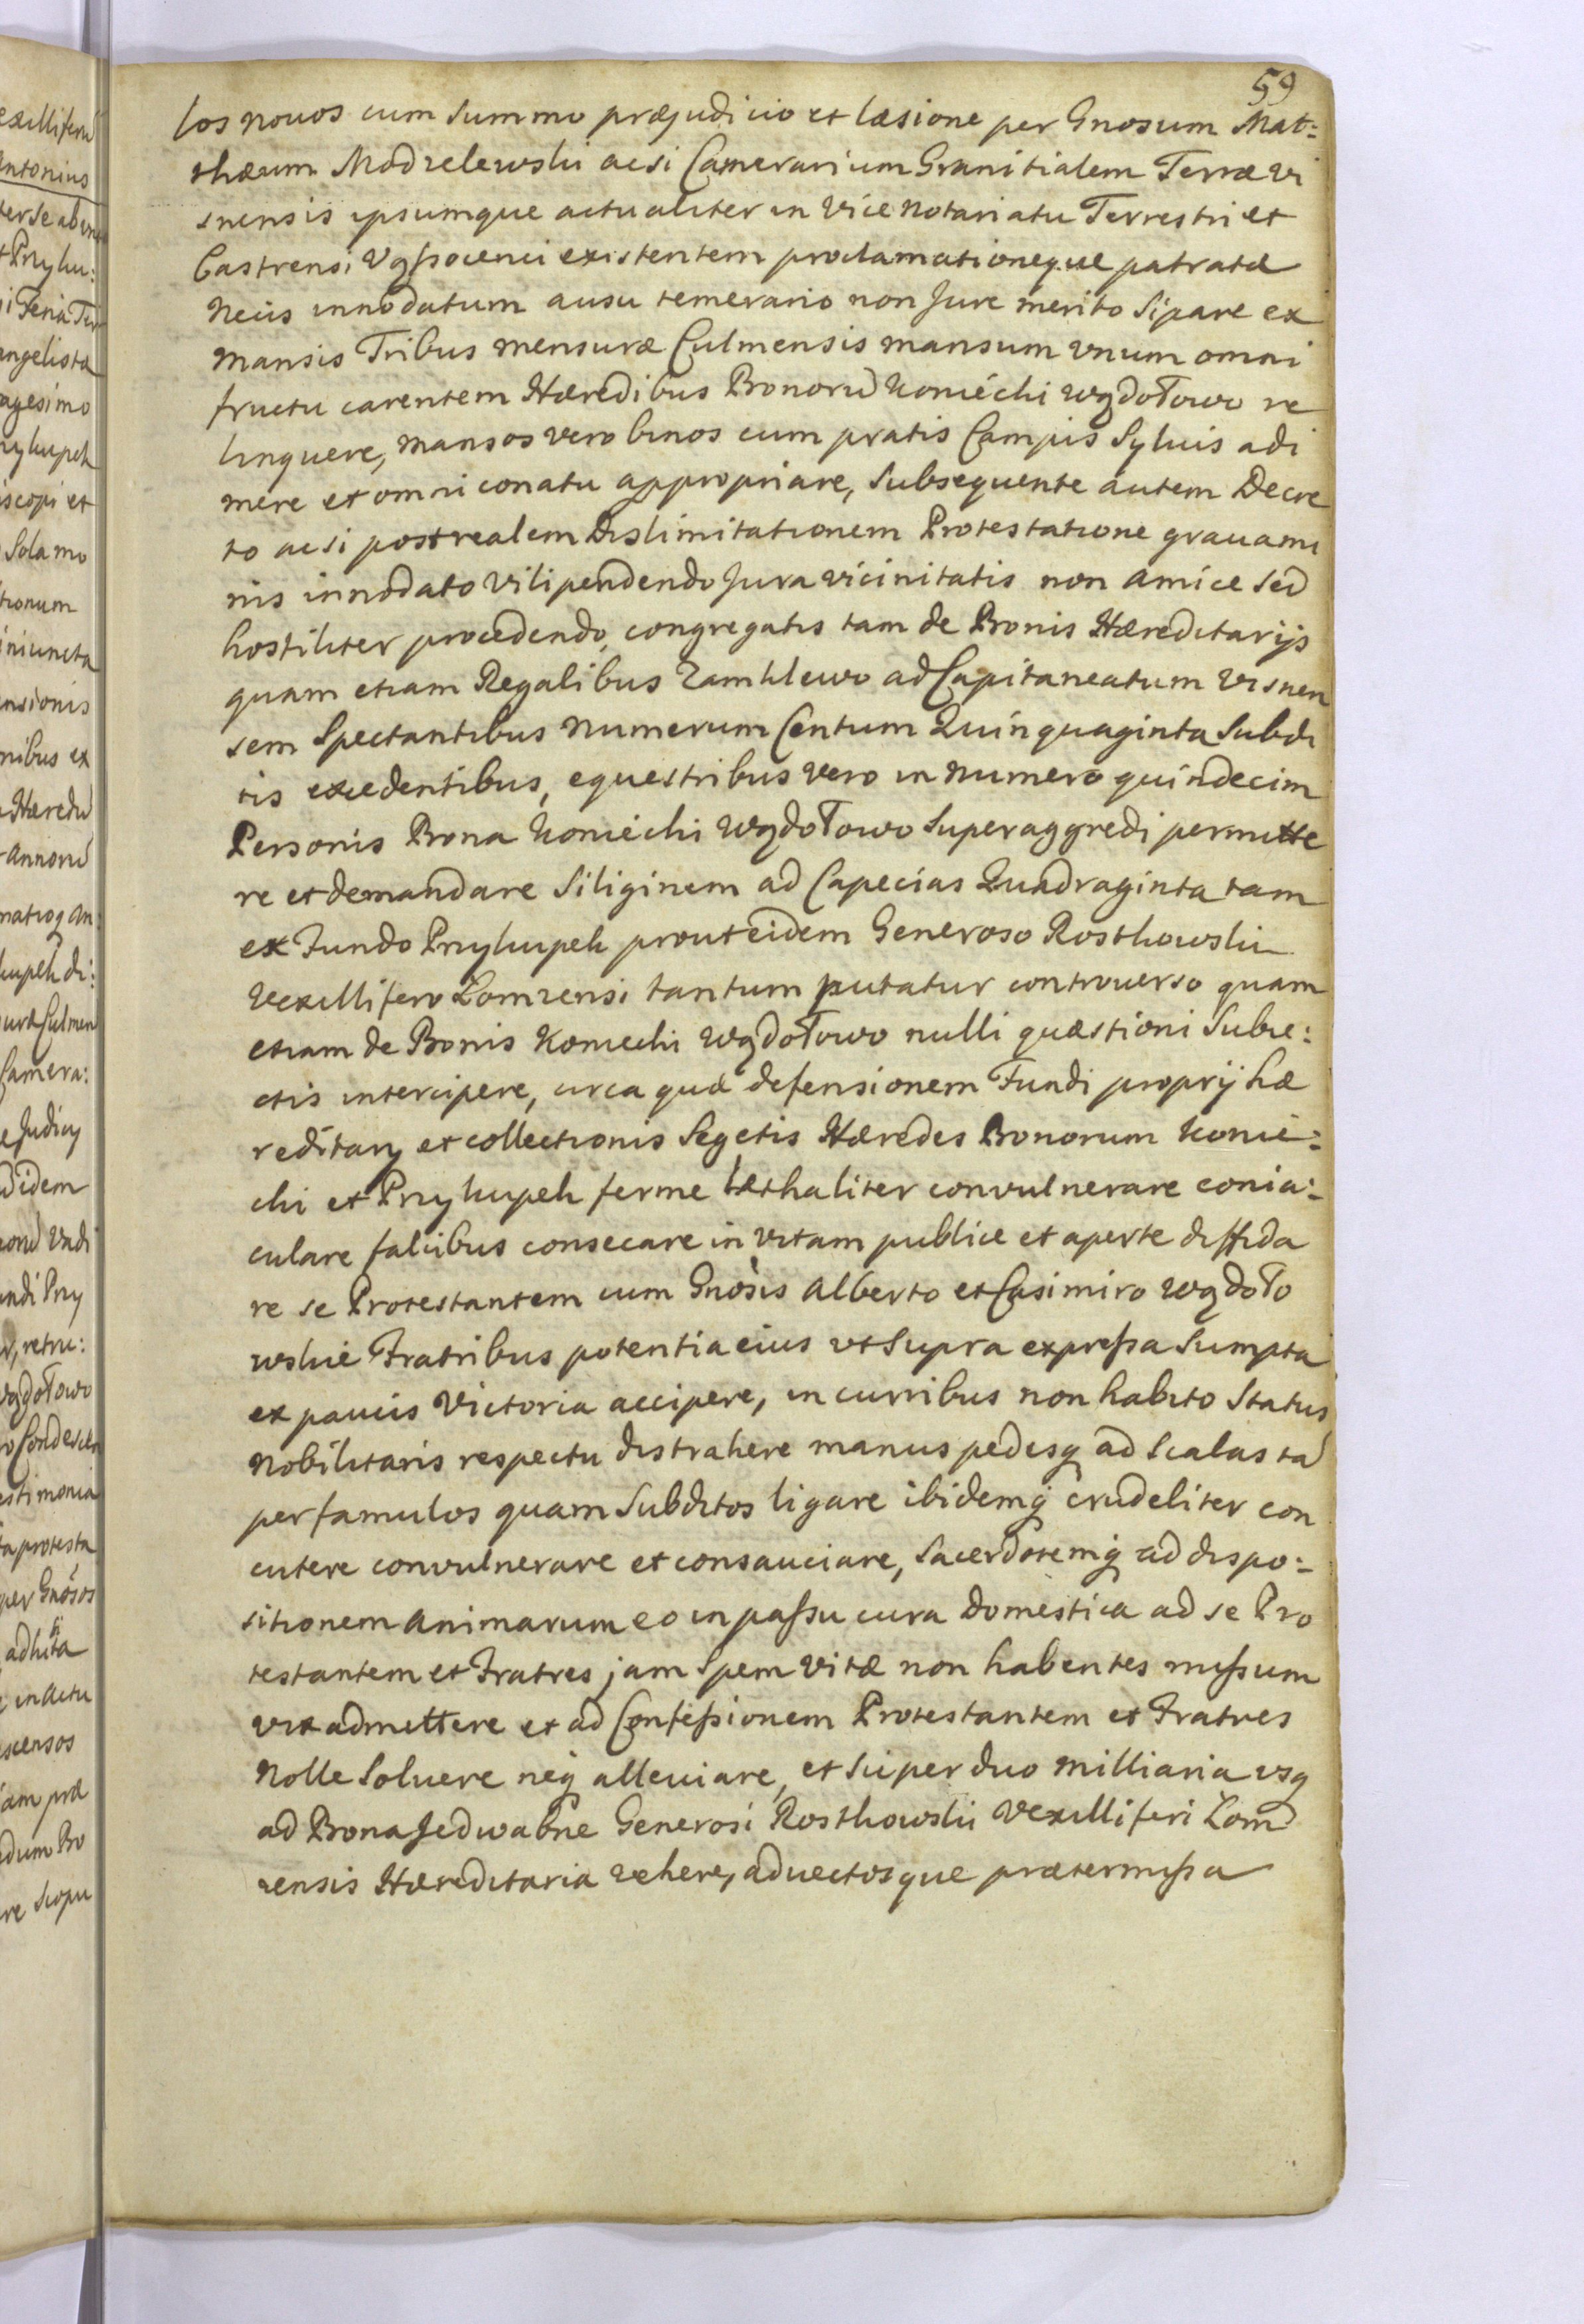 59
los nouos cum Summo præjudicio et læsione per Gnosum Mat:
thæum Modzelewski acsi Camerarium Granitialem Terræ Vi
snensis ipsumque actualiter in Vice Notariatu Terrestri et
Castrensi Vgßocenci existentem proclamationeque patratæ
Necis innodatum ausu temerario non Jure merito Sipare ex
Mansis Tribus mensuræ Culmensis mansum vnum omni
fructu carentem Hæredibus Bonorũ Koniecki Wądołowo re
linquere, Mansos vero binos cum pratis Campis Syluis adi
mere et omni conatu appropriare, Subsequente autem Decre
to acsi post realem Dislimitationem Protestatione grauami
nis innodato Vilipendendo Jura vicinitatis non Amice sed
hostiliter procedendo, congregatis tam de Bonis Hæreditarijs
quam etiam Regalibus Zamklewo ad Capitaneatum Visnen
sem Spectantibus Numerum Centum Quinquaginta Subdi
tis excedentibus, equestribus vero in Numero quindecim
Personis Bona Koniecki Wądołowo Superaggredi permitte
re et demandare Siliginem ad Capecias Quadraginta tam
ex Fundo Przykupek prout eidem Generoso Rostkowski
Vexillifero Łomzensi tantum putatur controuerso quam
etiam de Bonis Koniecki Wądołowo nulli quæstioni Subie:
ctis intercipere, circa quæ defensionem Fundi proprij hæ
reditarij et collectionis Segetis Hæredes Bonorum Konie:
cki et Przykupek ferme læthaliter convulnerare conia:
culare falcibus consecare in vitam publice et aperte diffida
re se Protestantem cum Gnosis Alberto et Casimiro Wądoło
wskie Fratribus potentia eius vt Supra expreßa Sumpta
ex paucis Victoria accipere, in curribus non habito Status
Nobilitaris respectu distrahere manus pedesq ad Scalas tã
per famulos quam Subditos ligare ibidemq crudeliter con
cutere convulnerare et consauciare, Sacerdotemq ad dispo:
sitionem Animarum eo in paßu cura domestica ad se Pro
testantem et Fratres jam Spem Vitæ non habentes mißum
vix admittere et ad Confeßionem Protestantem et Fratres
Nolle Soluere neq alleuiare, et Super duo Milliaria vsq
ad Bona Jedwabne Generosi Rostkowski Vexilliferi Łom
zensis Hæreditaria vehere, aduectosque prætermißa
exilliferũ
Antonius
i Feria Ter
angelista
agesimo
iscopi et
Sola mo
iniuncta
nibus ex
Hæredũ
Annorũ
Camera:
idem
retru:
estimonia
protesta
per Gnosos
in Actu